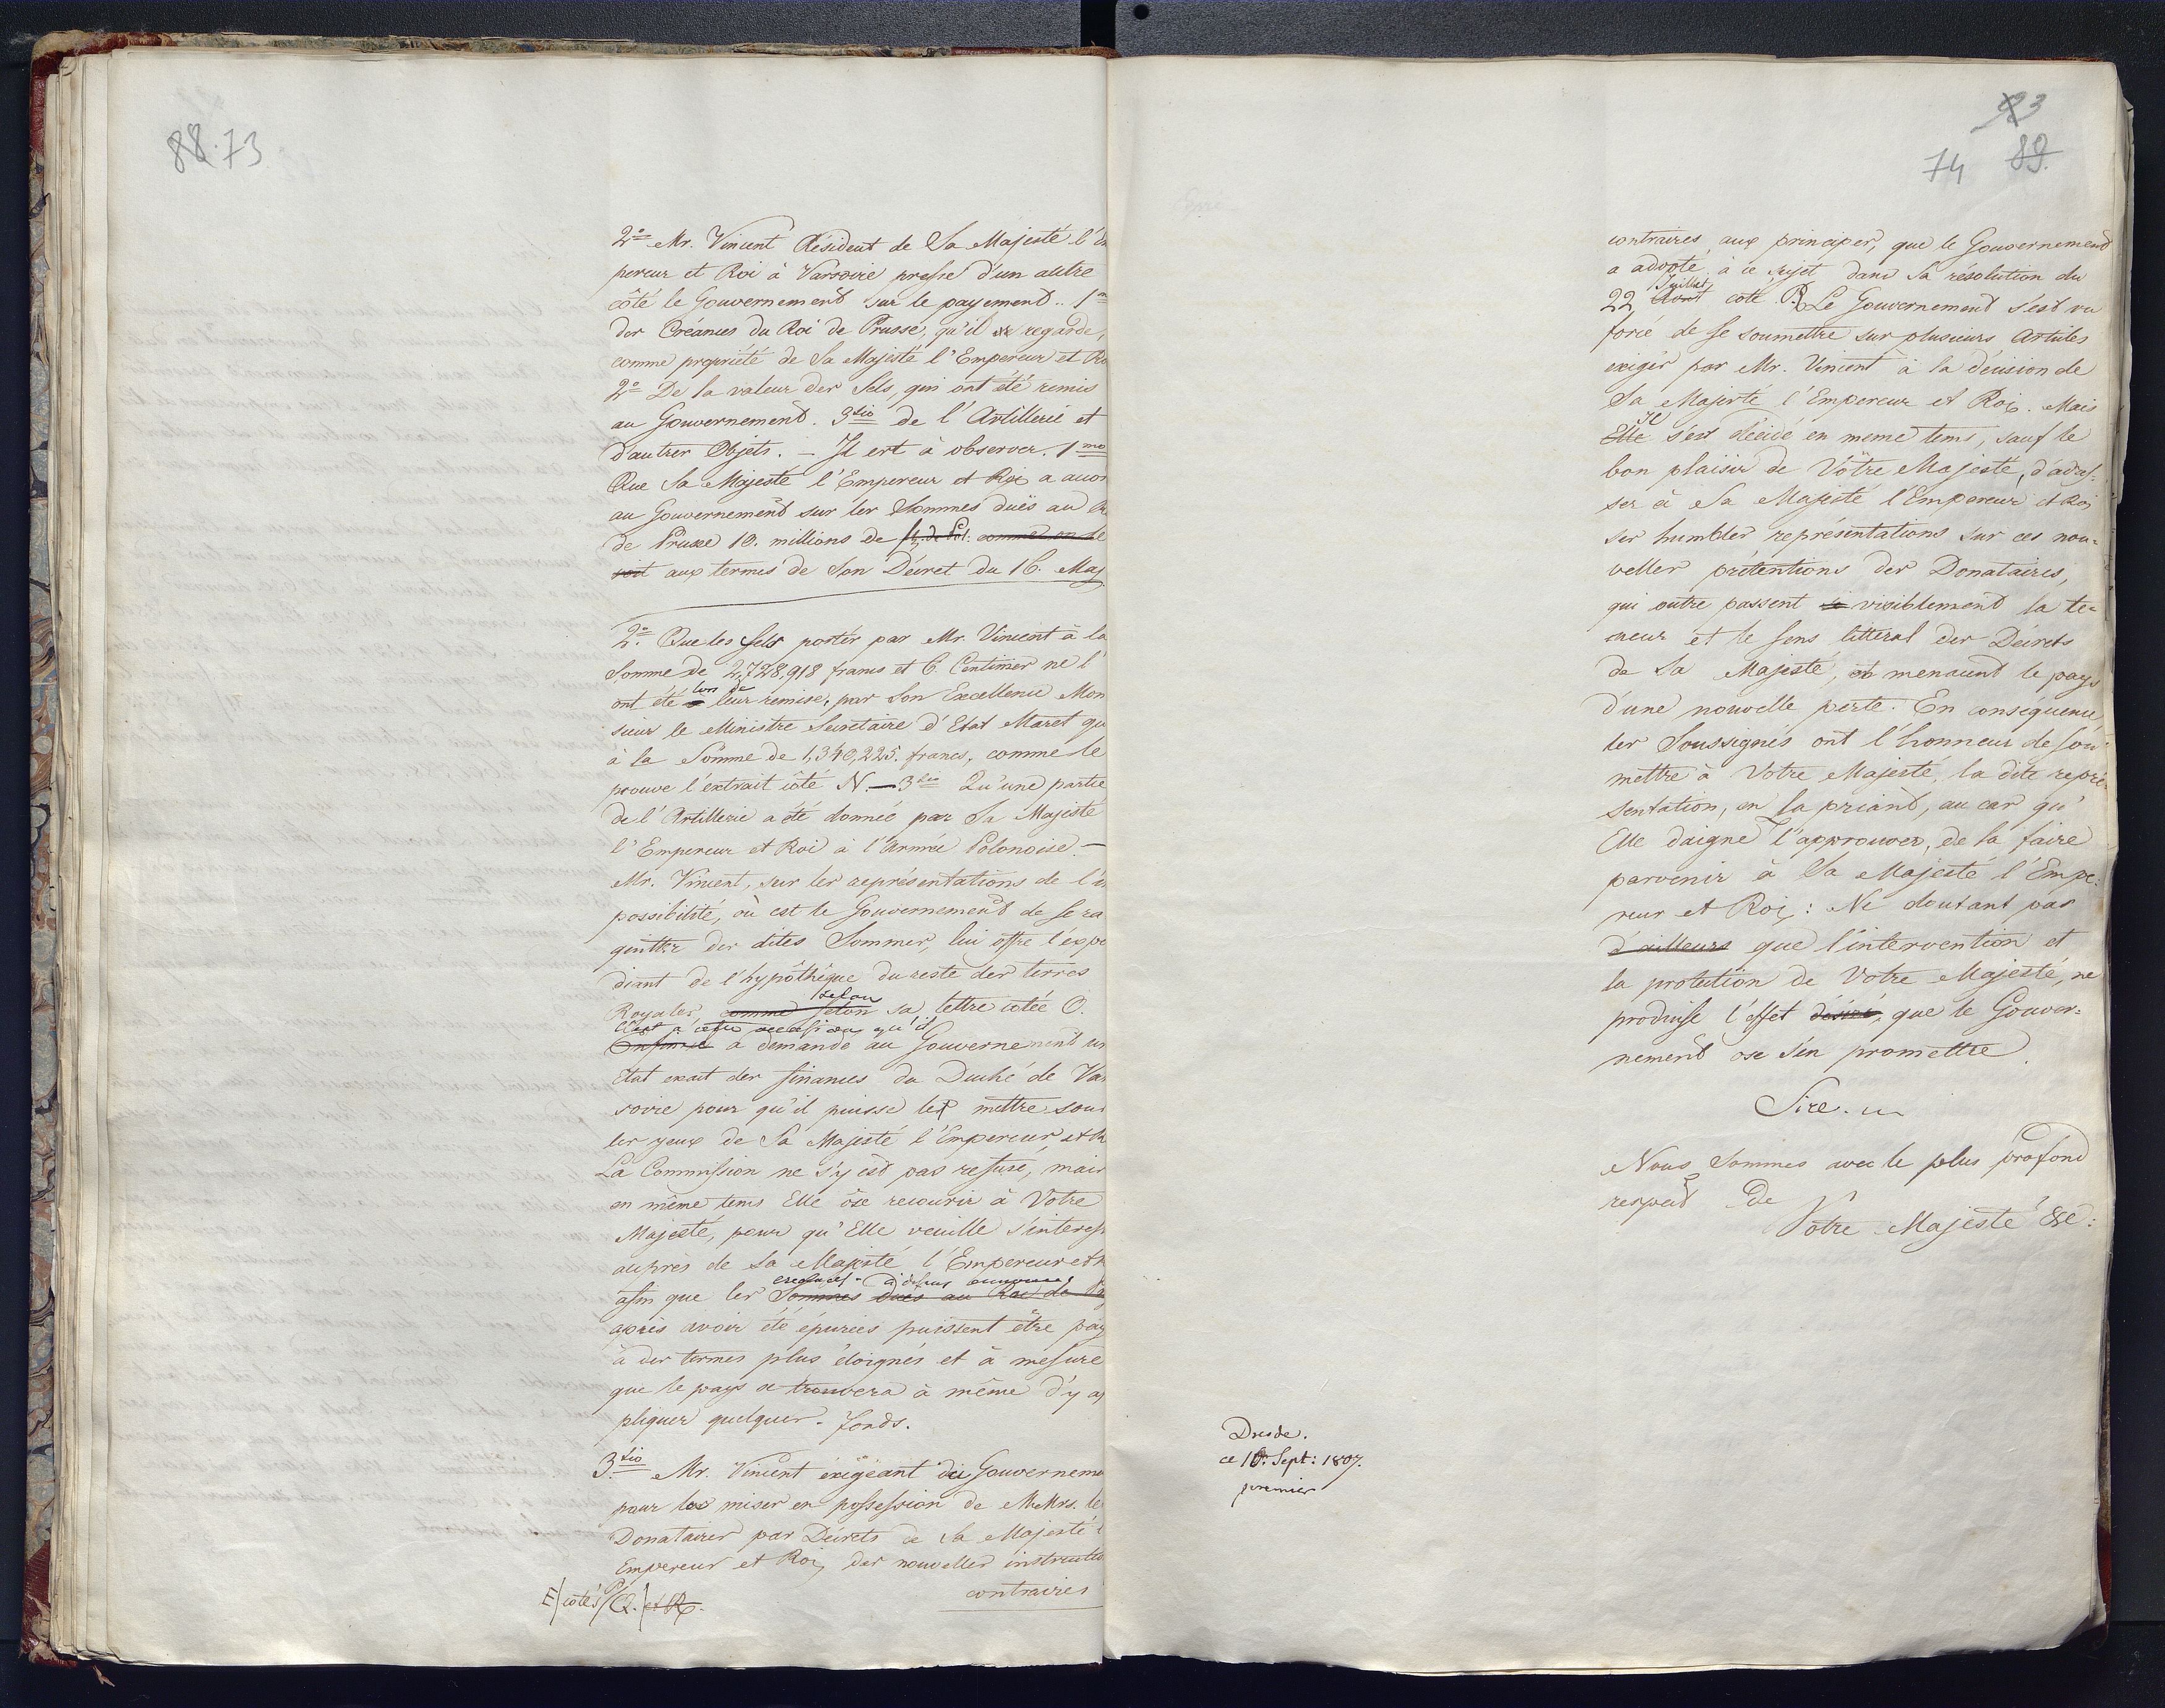 88. 73
2º Mr. Vincent Résident de Sa Majesté l'Em
pereur et Roi à Varsovie presse d'un autre
côté le Gouvernement sur le payement.. 1mo
des Créances du Roi de Prusse, qu'il regarde,
comme propriété de Sa Majesté l'Empereur et Roi
2º De la valeur des Sels, qui ont été remis
au Gouvernement. 3tio de l'Artillerie et
d'autres Objets. – Il est à observer. 1mo
Que Sa Majesté l'Empereur et Roi a accor
au Gouvernement sur les Sommes dués au R
de Prusse 10. millions de fl: de Pol: comme on le
voit aux termes de Son Décret du 16. May
2º Que les Sels portés par Mr. Vincent à la
Somme de 2,728,918 francs et 6 Centimes ne l'
ont été lors de leur remise, par Son Excellence Mon
sieur le Ministre Secretaire d'Etat Maret qu
à la Somme de 1,340,225. francs, comme le
prouve l'extrait côté N. — 3tio Qu'une partie
de l'Artillerie a été donnée par Sa Majesté
l'Empereur et Roi a l'Armée Polonoise. —
Mr. Vincent, sur les représentations de l'im
possibilité, où est le Gouvernement de se ra
quitter des dites Sommes, lui offre l'expe
diant de l'hypôthèque du reste des terres
selon
Royales, comme selon sa lettre cotée O.
C'est à cette occasion qu'il
Enfin il a demandé au Gouvernement un
Etat exact des finances du Duché de Var
sovie pour qu'il puisse les mettre sous
les yeux de Sa Majesté l'Empereur et R
La Commission ne s'y est pas refusé, mais
en même tems Elle ôse recourir à Votre
Majesté, pour qu'Elle veuille s'interess
auprès de Sa Majesté l'Empereur et R
creances ci dessus
afin que les Sommes dués au Roi de Pru
après avoir été épurées puissent être pay
à des termes plus éloignés et à mesure
que le pays se trouvera à même d'y ap
pliquer quelques. fonds.
3tio Mr. Vincent éxigéant du Gouverneme
pour les mises en possession de MMrs. les
Donataires par Décrets de Sa Majesté l'
Empereur et Roi, des nouvelles instructio
E/ cotés P/Q. / et R.
contraires
93
74 89.
contraires aux principes, que le Gouvernement
a adopté à ce sujet dans Sa résolution du
Juillet
22 Avril coté R. Le Gouvernement s'est vu
forcé de se soumettre sur plusieurs Articles
exigés par Mr. Vincent à la décision de
Sa Majesté l'Empereur et Roi. Mais
Il
Elle s'est décidé en meme tems, sauf le
bon plaisir de Vôtre Majesté, d'adres-
ser à Sa Majesté l'Empereur et Roi
ses humbles représentations sur ces nou-
velles prétentions des Donataires,
qui outre passent si visiblement la te-
neur et le sens litteral des Décrets
de Sa Majesté, et menacent le pays
d'une nouvelle perte. En consequence
les Soussignés ont l'honneur de sou
mettre à Votre Majesté, la dite repré
sentation, en la priant, au cas qu'
Elle daigne l'approuver, de la faire
parvenir à Sa Majesté l'Empe:
reur et Roi: Ne doutant pas
d'ailleurs que l'intervention et
la protection de Votre Majesté, ne
produise l'effet désiré, que le Gouver:
nement ose s'en promettre.
Sire.
Nous Sommes avec le plus profond
respect De
Votre Majesté &c:
Dresde.
ce 10. Sept: 1807.
premier